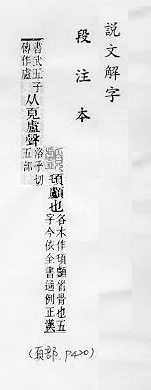 說文解字
段注本
顱也 各本作顱首骨也五
字今依全書通例正漢
書武五子
傳作盧
从頁盧聲 洛乎切
五部
(頁部 P420)